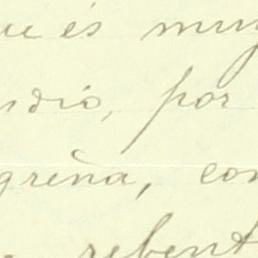 ue és muy
ndió, por
greña, con
rebent